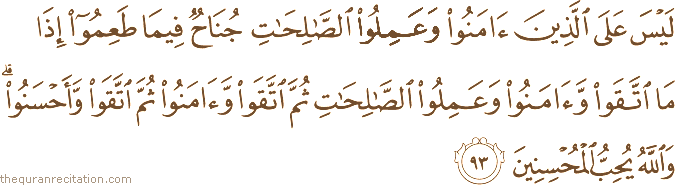 لَيْسَ عَلَى ٱلَّذِينَ ءَامَنُوا۟ وَعَمِلُوا۟ ٱلصَّـٰلِحَـٰتِ جُنَاحٌ فِيمَا طَعِمُوٓا۟ إِذَا
مَا ٱتَّقَوا۟ وَّءَامَنُوا۟ وَعَمِلُوا۟ ٱلصَّـٰلِحَـٰتِ ثُمَّ ٱتَّقَوا۟ وَّءَامَنُوا۟ ثُمَّ ٱتَّقَوا۟ وَّأَحْسَنُوا۟ ۗ
وَٱللَّهُ يُحِبُّ ٱلْمُحْسِنِينَ ٩٣
thequranrecitation.com